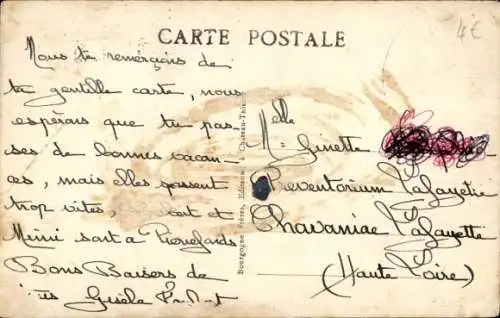 4€
CARTE POSTALE
Nous te remerçions de
ta gentille carte, nous
esperons que tu pas-
ses de bonnes vacan-
ces, mais elles passent
trop vites, et
Mimi sont a Pierrefonds
Bons Baisers de
Gisèle
Bourgogne Frères, Editeurs à Château-Thierry
Melle Ginette
Preventorium Lafayette
Chavaniac Lafayette
(Haute Loire)